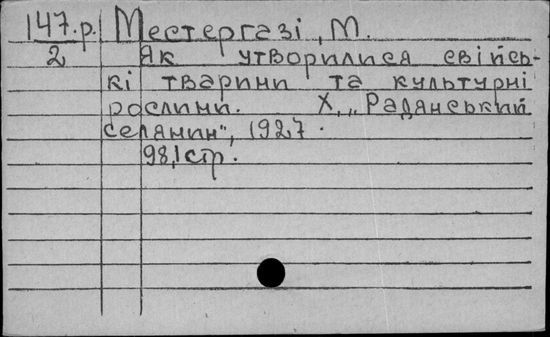 147.р. Местергазі, М.
2 Як утворилися свійсь-
кі тварини та культурні
рослини. Х., „Радянський
селянин", 1927.
98,1 стр.